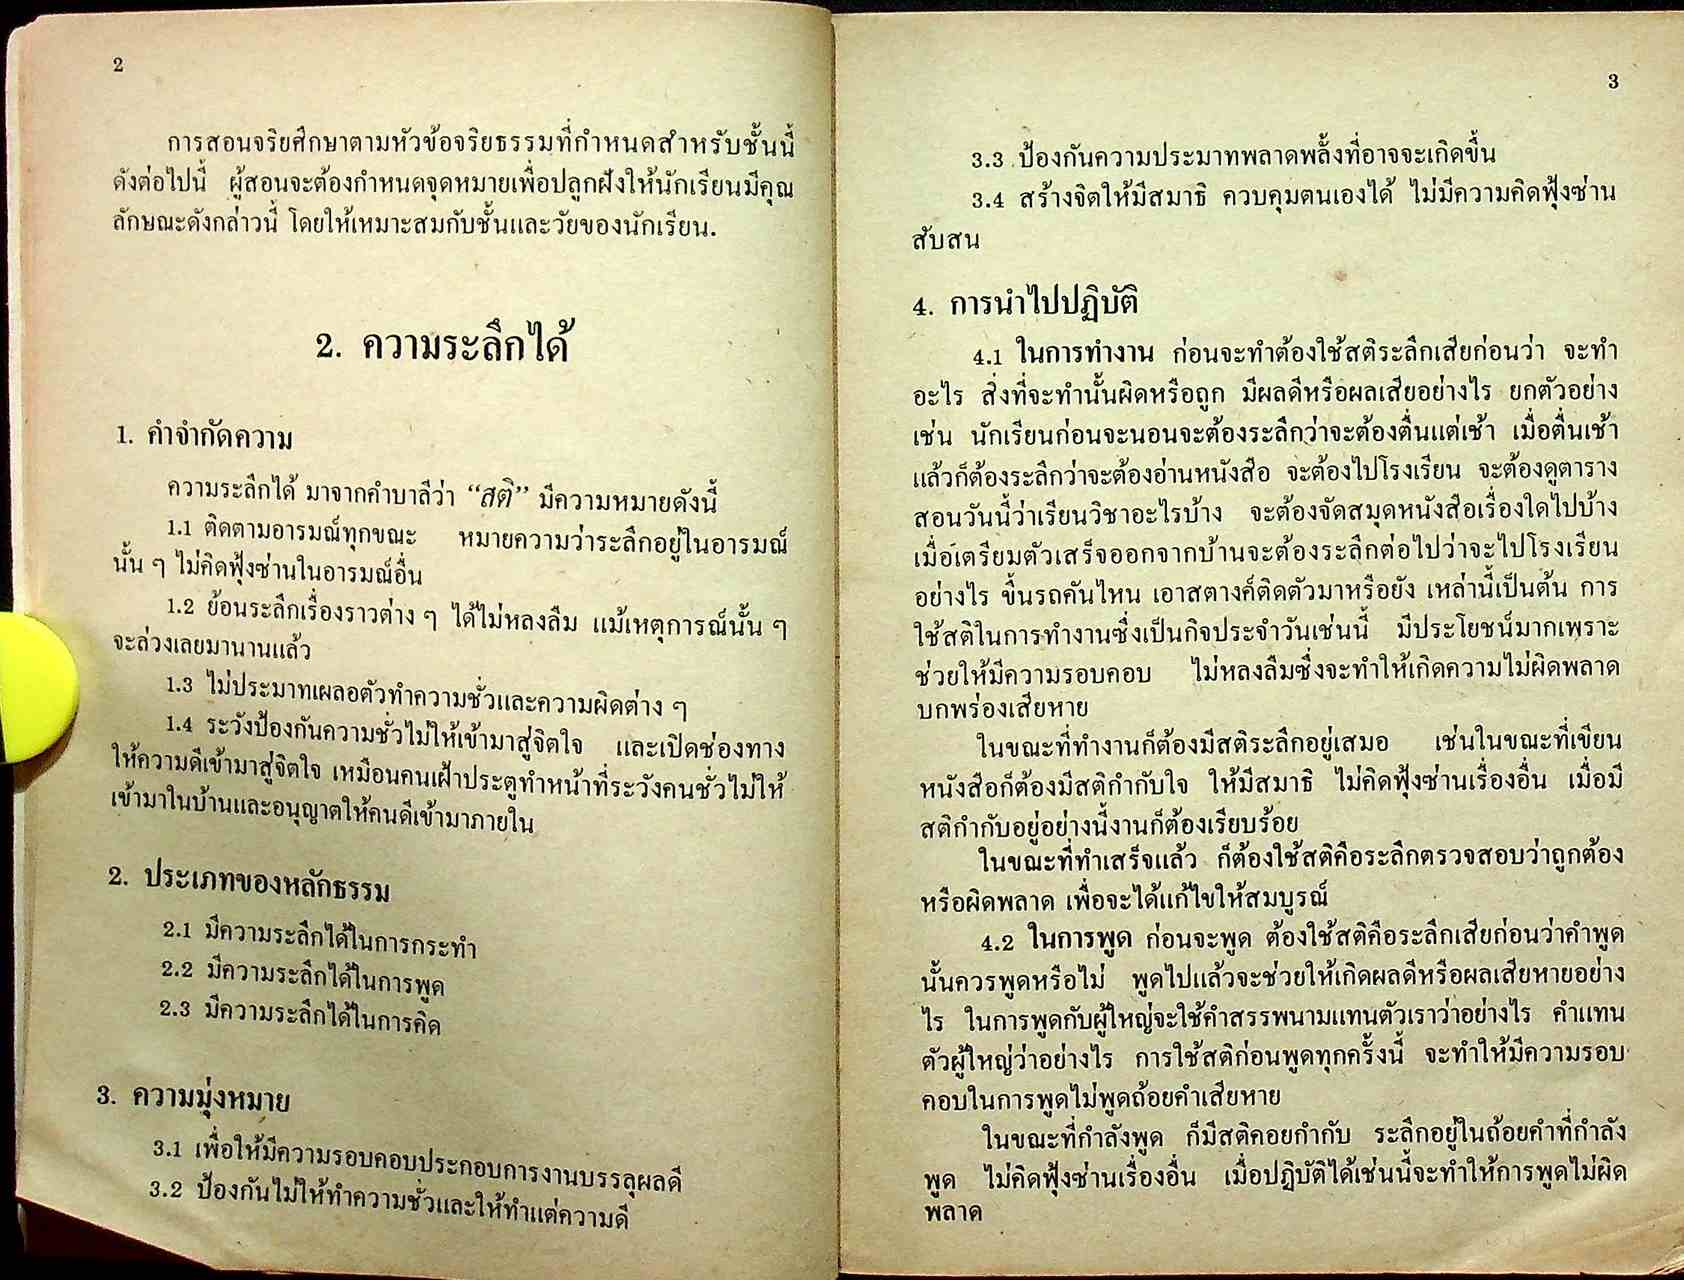 2
การสอนจริยศึกษาตามหัวข้อจริยธรรมที่กำหนดสำหรับชั้นนี้
ดังต่อไปนี้ ผู้สอนจะต้องกำหนดจุดหมายเพื่อปลูกฝังให้นักเรียนมีคุณ
ลักษณะดังกล่าวนี้ โดยให้เหมาะสมกับชั้นและวัยของนักเรียน.
2. ความระลึกได้
1. คำจำกัดความ
ความระลึกได้ มาจากคำบาลีว่า “สติ” มีความหมายดังนี้
1.1 ติดตามอารมณ์ทุกขณะ หมายความว่าระลึกอยู่ในอารมณ์
นั้น ๆ ไม่คิดฟุ้งซ่านในอารมณ์อื่น
1.2 ย้อนระลึกเรื่องราวต่าง ๆ ได้ไม่หลงลืม แม้เหตุการณ์นั้น ๆ
จะล่วงเลยมานานแล้ว
1.3 ไม่ประมาทเผลอตัวทำความชั่วและความผิดต่าง ๆ
1.4 ระวังป้องกันความชั่วไม่ให้เข้ามาสู่จิตใจ และเปิดช่องทาง
ให้ความดีเข้ามาสู่จิตใจ เหมือนคนเฝ้าประตูทำหน้าที่ระวังคนชั่วไม่ให้
เข้ามาในบ้านและอนุญาตให้คนดีเข้ามาภายใน
2. ประเภทของหลักธรรม
2.1 มีความระลึกได้ในการกระทำ
2.2 มีความระลึกได้ในการพูด
2.3 มีความระลึกได้ในการคิด
3. ความมุ่งหมาย
3.1 เพื่อให้มีความรอบคอบประกอบการงานบรรลุผลดี
3.2 ป้องกันไม่ให้ทำความชั่วและให้ทำแต่ความดี
3
3.3 ป้องกันความประมาทพลาดพลั้งที่อาจจะเกิดขึ้น
3.4 สร้างจิตให้มีสมาธิ ควบคุมตนเองได้ ไม่มีความคิดฟุ้งซ่าน
สับสน
4. การนำไปปฏิบัติ
4.1 ในการทำงาน ก่อนจะทำต้องใช้สติระลึกเสียก่อนว่า จะทำ
อะไร สิ่งที่จะทำนั้นผิดหรือถูก มีผลดีหรือผลเสียอย่างไร ยกตัวอย่าง
เช่น นักเรียนก่อนจะนอนจะต้องระลึกว่าจะต้องตื่นแต่เช้า เมื่อตื่นเช้า
แล้วก็ต้องระลึกว่าจะต้องอ่านหนังสือ จะต้องไปโรงเรียน จะต้องดูตาราง
สอนวันนี้ว่าเรียนวิชาอะไรบ้าง จะต้องจัดสมุดหนังสือเรื่องใดไปบ้าง
เมื่อเตรียมตัวเสร็จออกจากบ้านจะต้องระลึกต่อไปว่าจะไปโรงเรียน
อย่างไร ขึ้นรถคันไหน เอาสตางค์ติดตัวมาหรือยัง เหล่านี้เป็นต้น การ
ใช้สติในการทำงานซึ่งเป็นกิจประจำวันเช่นนี้ มีประโยชน์มากเพราะ
ช่วยให้มีความรอบคอบ ไม่หลงลืมซึ่งจะทำให้เกิดความไม่ผิดพลาด
บกพร่องเสียหาย
ในขณะที่ทำงานก็ต้องมีสติระลึกอยู่เสมอ เช่นในขณะที่เขียน
หนังสือก็ต้องมีสติกำกับใจ ให้มีสมาธิ ไม่คิดฟุ้งซ่านเรื่องอื่น เมื่อมี
สติกำกับอยู่อย่างนี้งานก็ต้องเรียบร้อย
ในขณะที่ทำเสร็จแล้ว ก็ต้องใช้สติคือระลึกตรวจสอบว่าถูกต้อง
หรือผิดพลาด เพื่อจะได้แก้ไขให้สมบูรณ์
4.2 ในการพูด ก่อนจะพูด ต้องใช้สติคือระลึกเสียก่อนว่าคำพูด
นั้นควรพูดหรือไม่ พูดไปแล้วจะช่วยให้เกิดผลดีหรือผลเสียหายอย่าง
ไร ในการพูดกับผู้ใหญ่จะใช้คำสรรพนามแทนตัวเราว่าอย่างไร คำแทน
ตัวผู้ใหญ่ว่าอย่างไร การใช้สติก่อนพูดทุกครั้งนี้ จะทำให้มีความรอบ
คอบในการพูดไม่พูดถ้อยคำเสียหาย
ในขณะที่กำลังพูด ก็มีสติคอยกำกับ ระลึกอยู่ในถ้อยคำที่กำลัง
พูด ไม่คิดฟุ้งซ่านเรื่องอื่น เมื่อปฏิบัติได้เช่นนี้จะทำให้การพูดไม่ผิด
พลาด